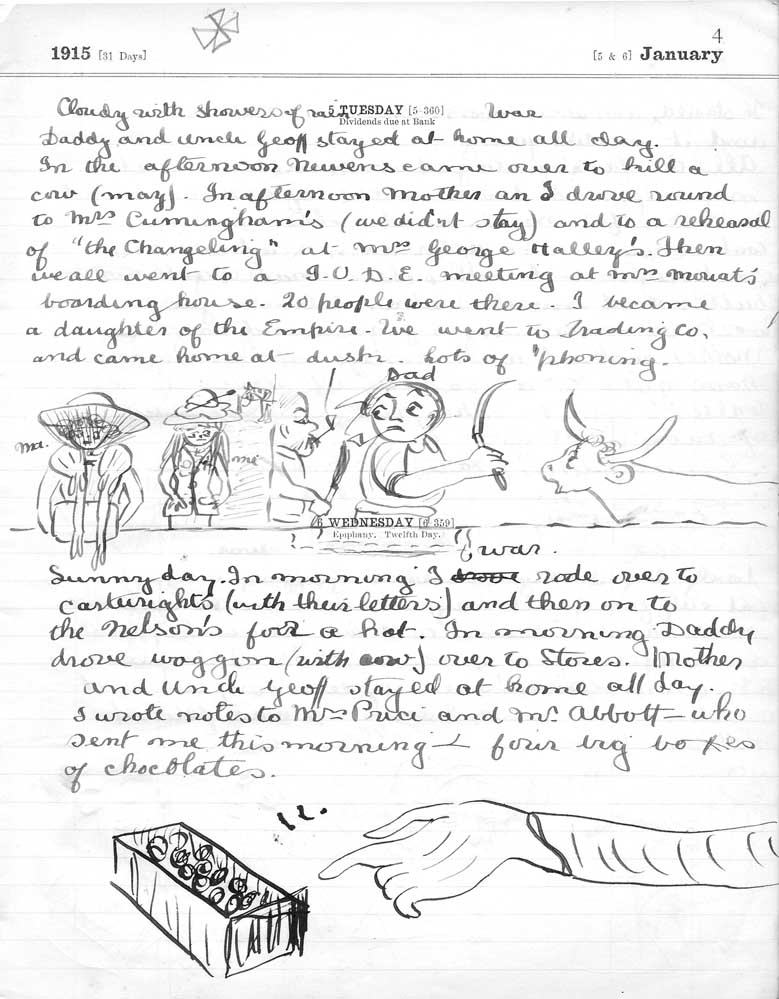 4
1915 [31 Days] [5 & 6] January
Cloudy with showers of rain 5 TUESDAY [5-360] War
Dividends due at Bank
Daddy and uncle Geoff stayed at home all day.
In the afternoon Newens came over to kill a
cow (may). In afternoon Mother an I drove round
to Mrs Cuningham's (we did'nt stay) and to a rehearsal
of "the Changeling" at Mrs George Halley's. Then
we all went to a I.O.D.E. meeting at Mrs Mouat's
boarding house. 20 people were there. I became
a daughter of the Empire. We went to Trading Co,
and came home at dusk. Lots of 'phoning.
Dad
Ma.
me
6 WEDNESDAY [6-359]
Epiphany. Twelfth Day.
war.
Sunny day. In morning I drove rode over to
Cartwright's (with their letters) and then on to
the Nelson's foor a hat. In morning Daddy
drove waggon (with cow) over to Stores. Mother
and Uncle Geoff stayed at home all day.
I wrote notes to Mrs Price and Mr. Abbott – who
sent me this morning – four big boxes
of chocolates.